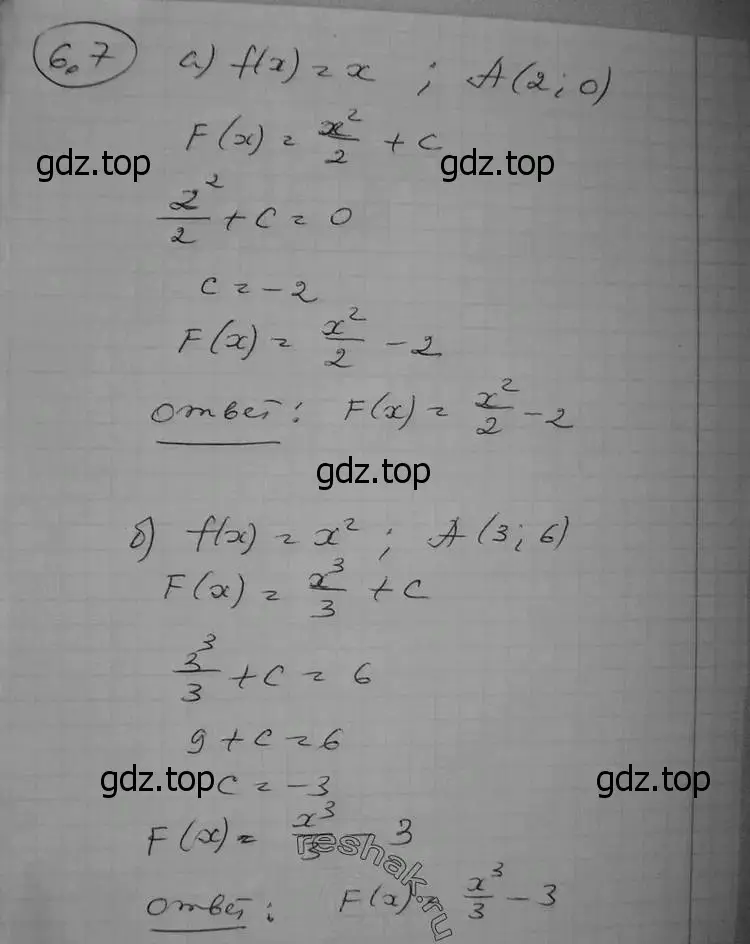 6.7 а) f(x) = x ; A(2; 0)
F(x) = x²/2 + C
gdz.top gdz.top
2²/2 + C = 0
C = -2
F(x) = x²/2 - 2
Ответ: F(x) = x²/2 - 2
gdz.top
б) f(x) = x² ; A(3; 6)
F(x) = x³/3 + C
3³/3 + C = 6
9 + C = 6
gdz.top C = -3 gdz.top
F(x) = x³/3 - 3
reshak.ru
Ответ: F(x) = x³/3 - 3